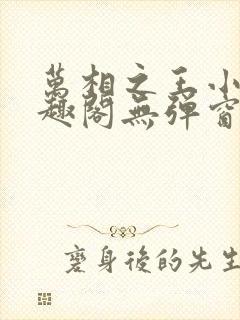 萬相之王小
趣閣無彈窗
變身後的先生